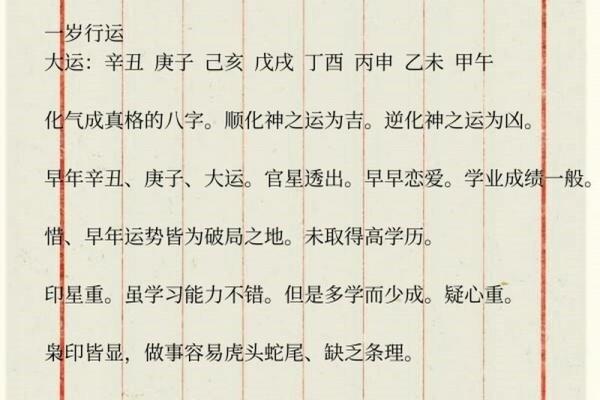 一岁行运
大运：辛丑 庚子 己亥 戊戌 丁酉 丙申 乙未 甲午
化气成真格的八字。顺化神之运为吉。逆化神之运为凶。
早年辛丑、庚子、大运。官星透出。早早恋爱。学业成绩一般。
惜、早年运势皆为破局之地。未取得高学历。
印星重。虽学习能力不错。但是多学而少成。疑心重。
枭印皆显，做事容易虎头蛇尾、缺乏条理。